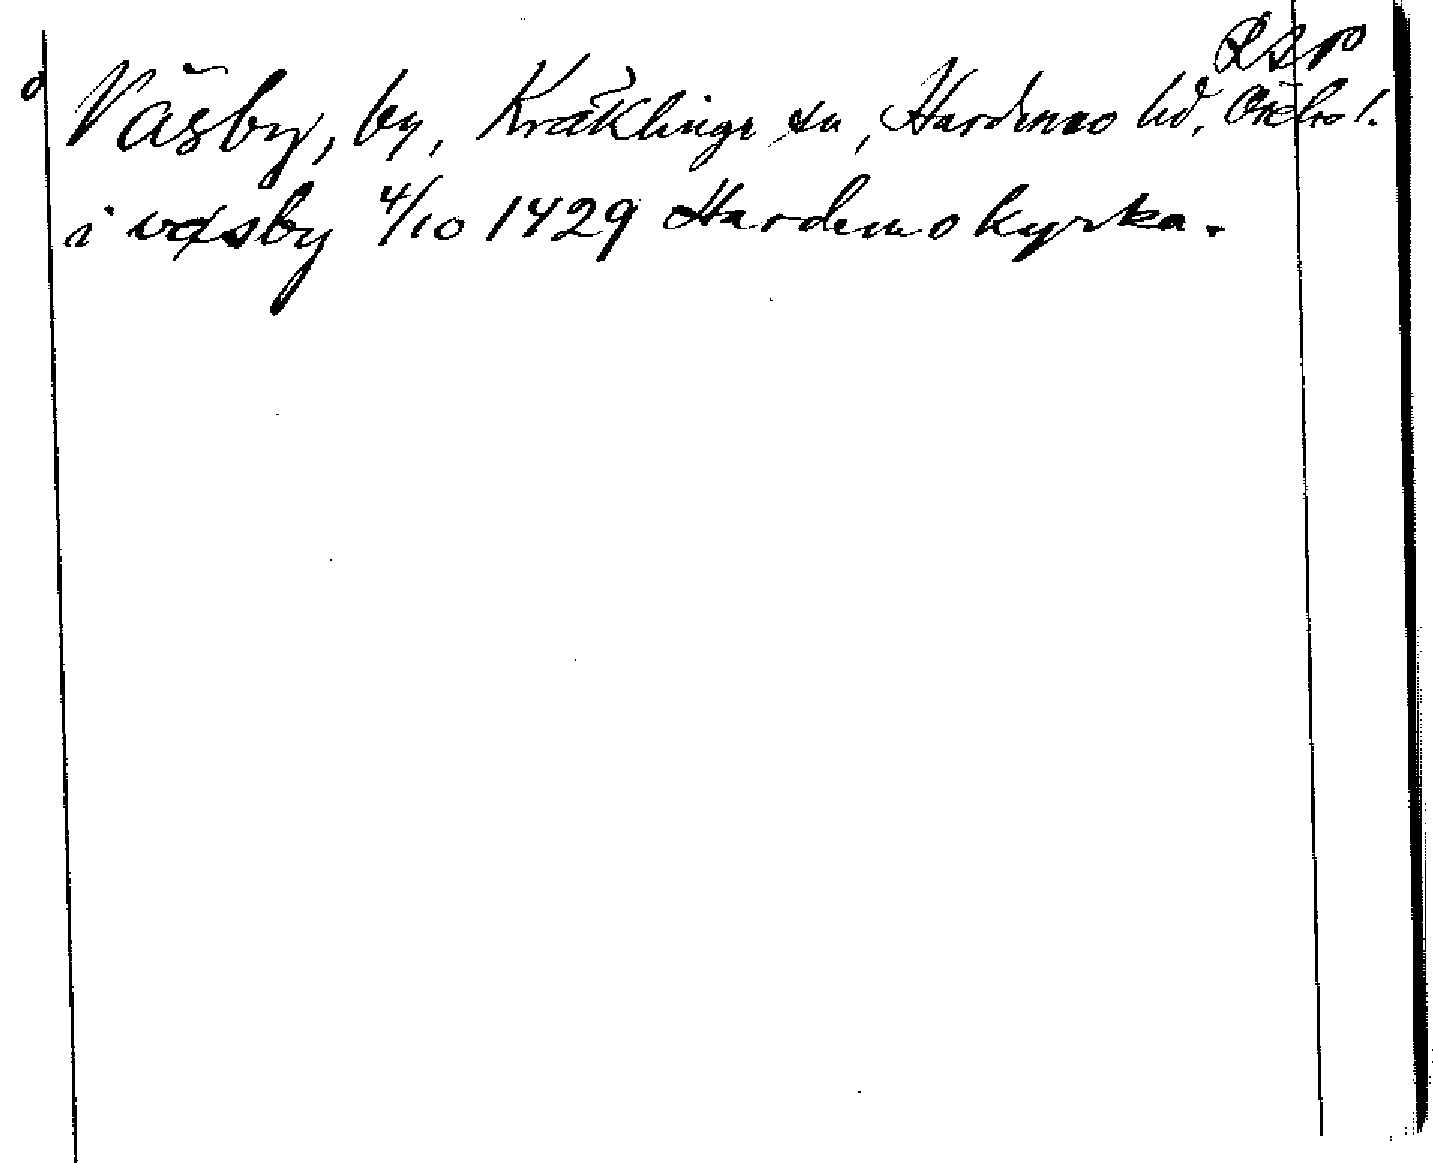 RSP
Väsby, by, Kräklinge sn, Hardemo hd, Örebro l.
i væsby 4/10 1429 Hardemo kyrka.